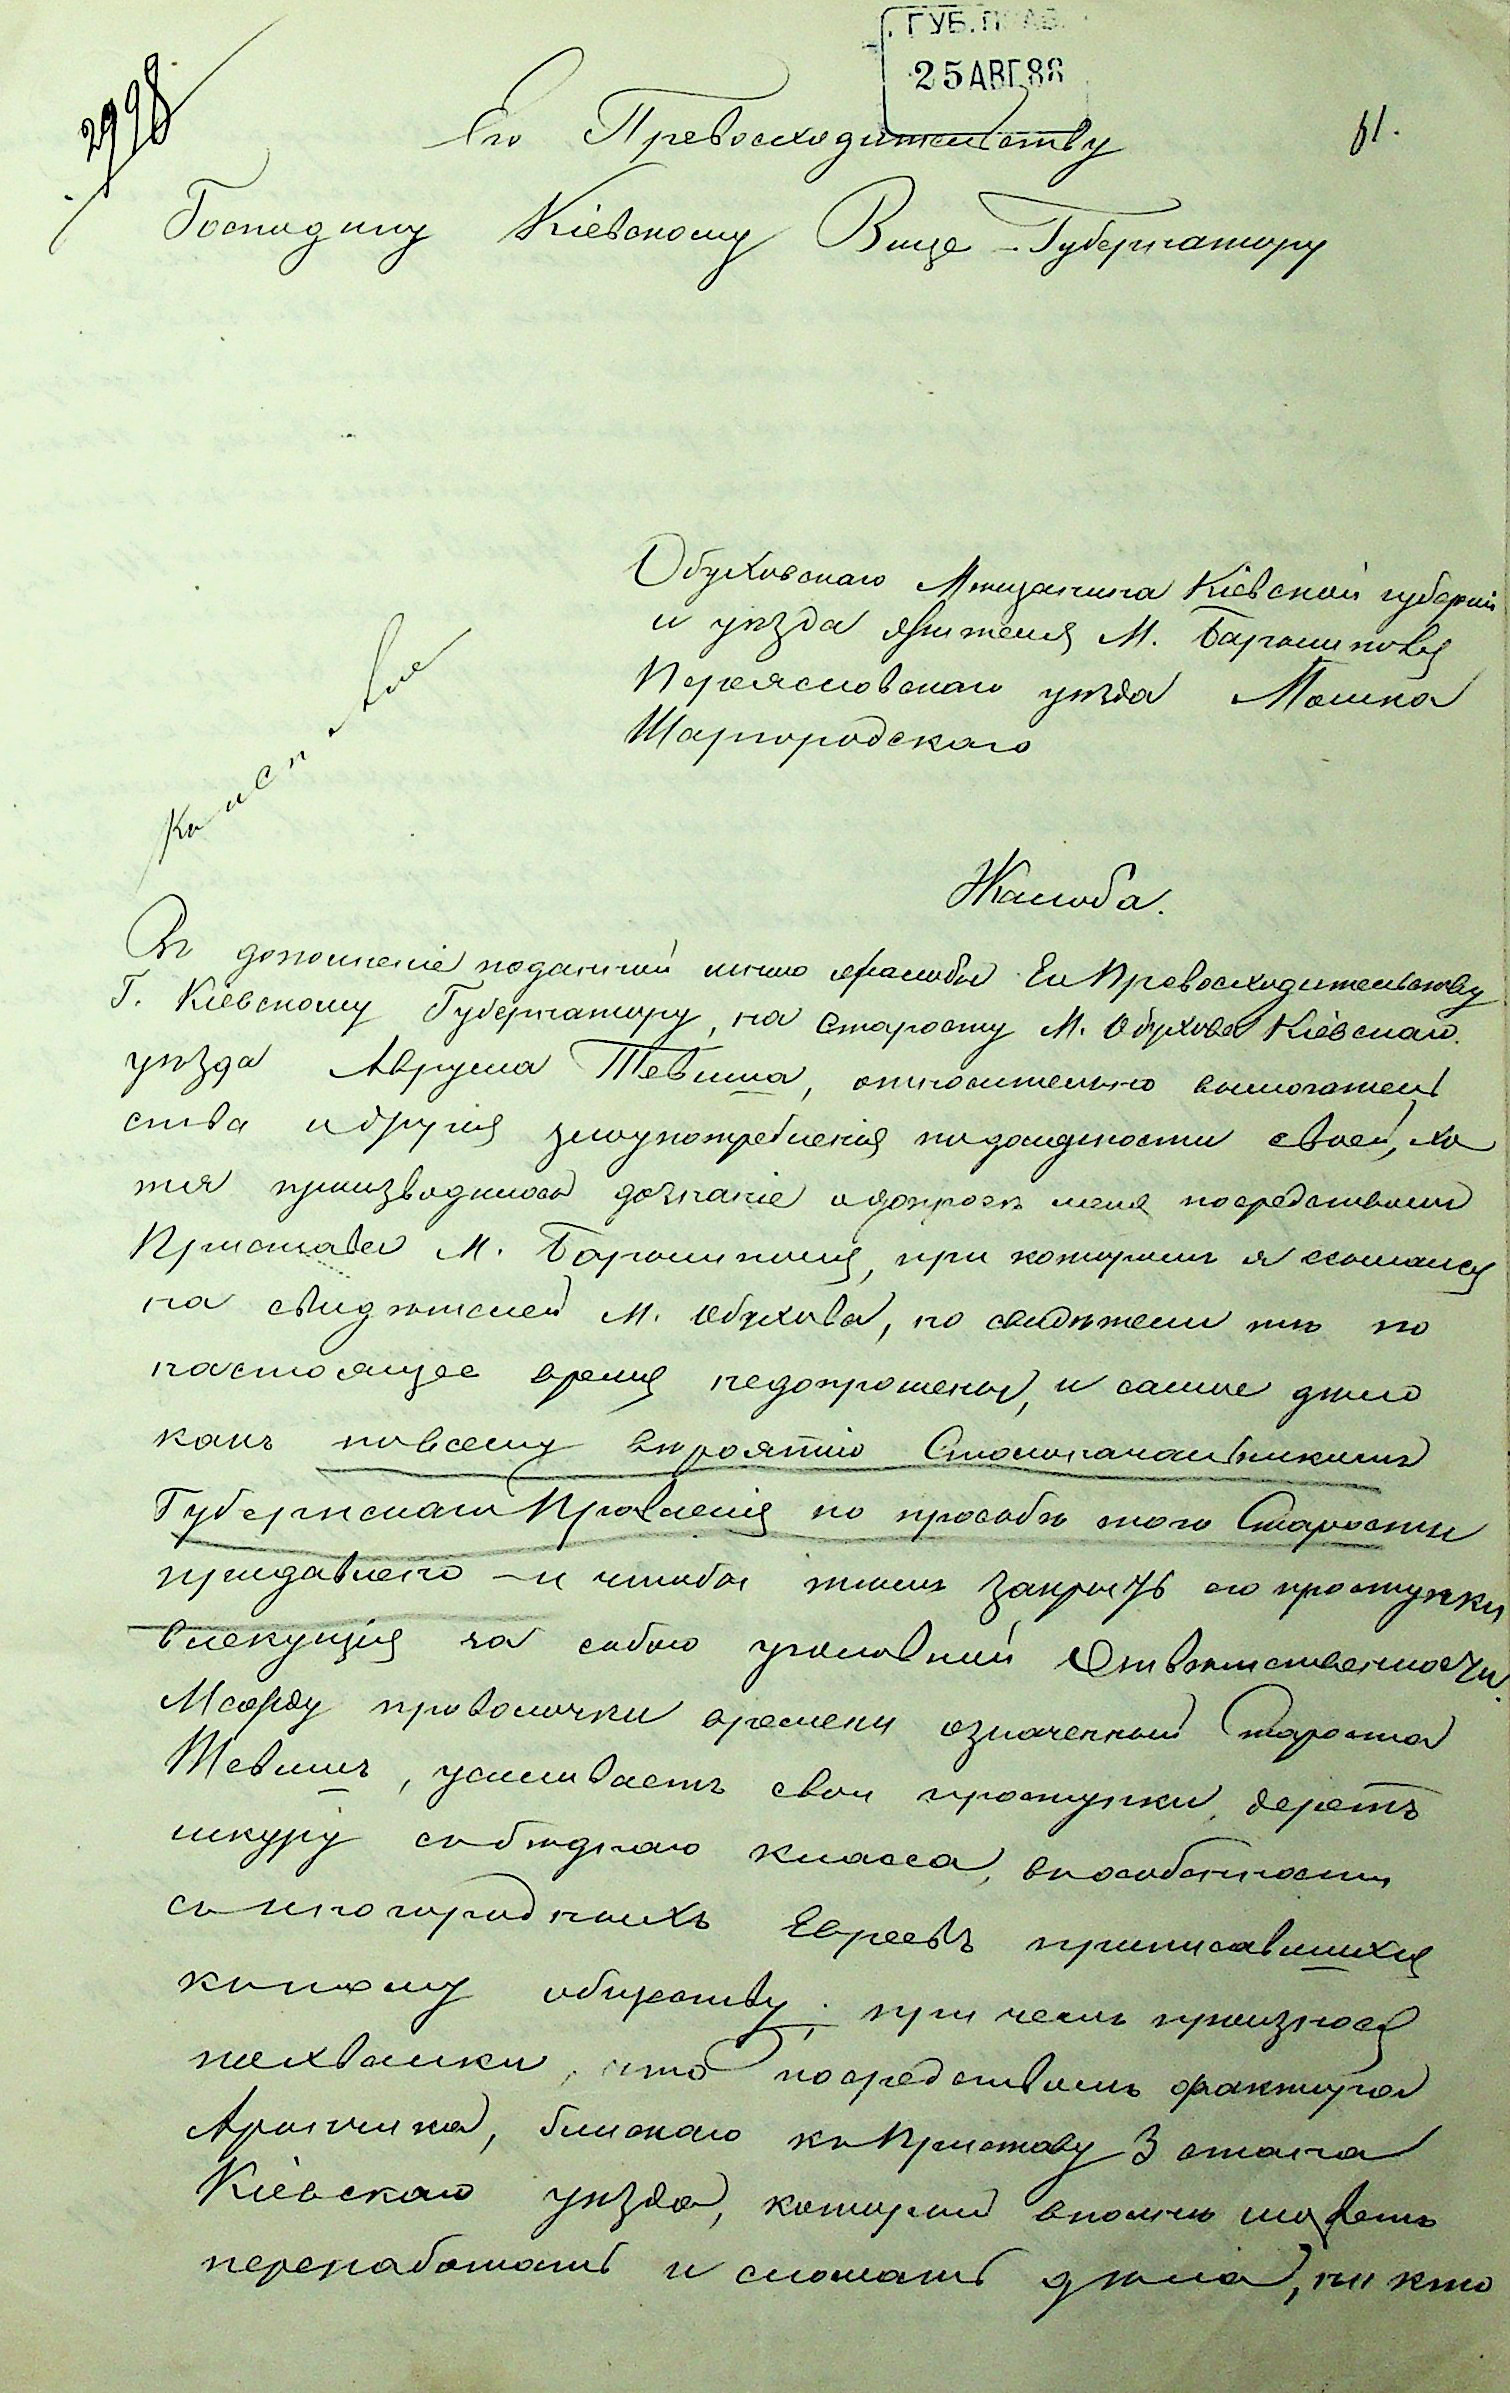 ГУБ. ПРАВ.
25 АВГ. 88
2998
Его Превосходительству
61.
Господину Кіевскому Вице-Губернатору
Обуховскаго Мѣщанина Кіевской губерніи
и уѣзда жителя М. Барышполя
Переяславскаго уѣзда Мошка
Шаргородскаго
Жалоба.
Въ дополненіе поданной мною жалобы Его Превосходительству
Г. Кіевскому Губернатору, на Старосту М. Обухова Кіевскаго
уѣзда Аврума Тевиша, относительно вымогатель
ства и другія злоупотребленія по должности своей, хо
тя производилось дознаніе и допросъ меня посредствомъ
Пристава М. Барышполя, при которомъ я ссылался
на свидѣтелей М. Обухова, но свидѣтели тѣ по
настоящее время недопрошены, и самое дѣло
какъ повсему вѣроятію Столоначальникомъ
Губернскаго Правленія по просьбѣ того Старосты
придавлено - и чтобы тѣмъ закрыть его проступки
влекущія за собою уголовной Отвѣтственности.
Между проволочки времени означенный Староста
Тевишъ, усиливаетъ свои проступки, деретъ
шкуру съ бѣднаго класса, въособенности
съ иногородныхъ Евреевъ приписавшихся
къ тому обществу; при чемъ произнося
похвалки, что посредствомъ фактура
Арончика, близкаго къ Приставу 3 стана
Кіевскаго уѣзда, который вполнѣ можетъ
переработать и сломать дѣла, ни кто